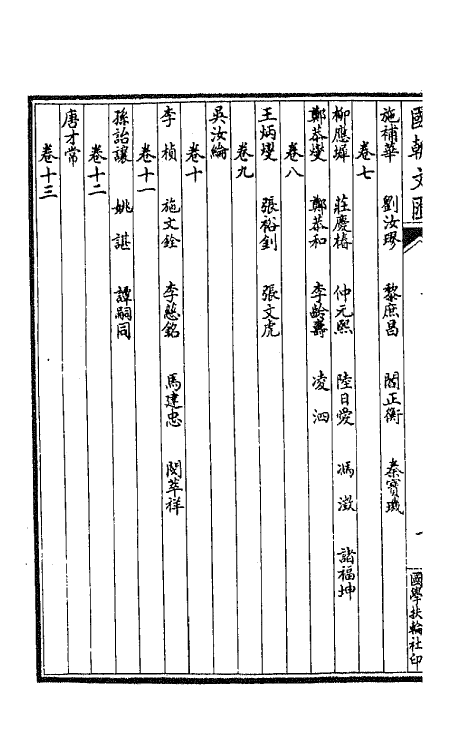 國朝文匯
一
國學扶輪社印
施補華　劉汝璆　黎庶昌　閻正衡　秦寶璣
卷七
柳應墀　莊慶椿　仲元熙　陸日愛　馮澂　諸福坤
鄭恭燮　鄭恭和　李齡壽　凌泗
卷八
王炳燮　張裕釗　張文虎
卷九
吳汝綸
卷十
李楨　施文銓　李慈銘　馬建忠　閔萃祥
卷十一
孫詒讓　姚諶　譚嗣同
卷十二
唐才常
卷十三